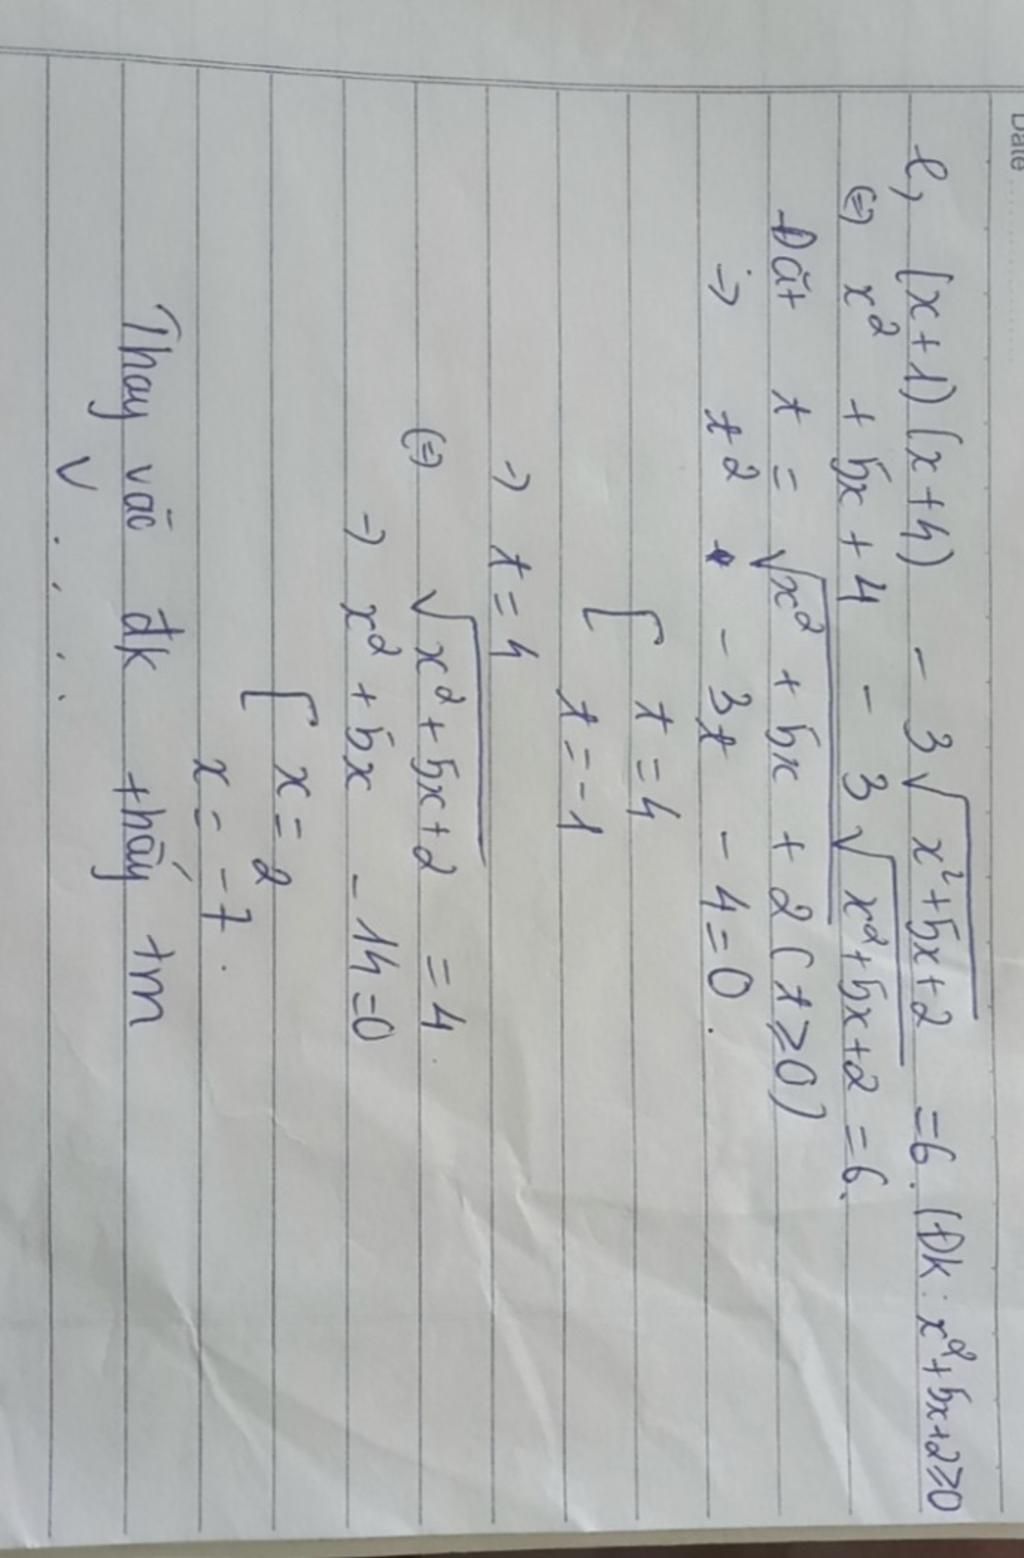 Date
e, (x+1)(x+4) - 3√(x²+5x+2) = 6. (ĐK: x²+5x+2≥0
(=) x² + 5x + 4 - 3√(x²+5x+2) = 6.
Đặt t = √(x² + 5x + 2) (t≥0)
=> t² - 3t - 4=0.
[ t=4
t=-1
=> t=4
(=) √(x²+5x+2) = 4.
=> x²+5x - 14=0
[ x=2
x=-7.
Thay vào đk thấy tm
V....